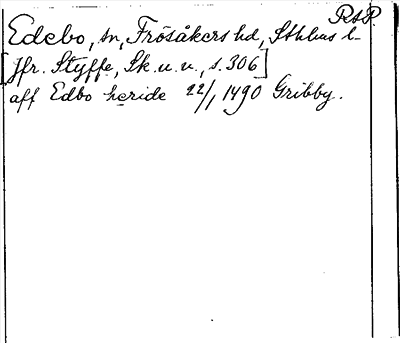 RAP.
Edebo, sn, Frösåkers hd, Sthlms l.
[Jfr. Styffe, Sk. u. u., s. 306]
aff Edbo heride 22/1 1490 Gribby.